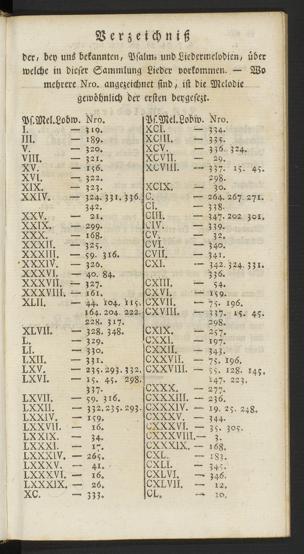 Verzeichniß
der, bey uns bekannten, Psalm- und Liedermelodien, über
welche in dieser Sammlung Lieder vorkommen. — Wo
mehrere Nro. angezeichnet sind, ist die Melodie
gewöhnlich der ersten bergesezt.
Ps. Mel. Lobw. Nro.
I. — 319.
III. — 189.
V. — 320.
VIII. — 321.
XV. — 156.
XVI. — 322.
XIX. — 323.
XXIV. — 324. 331. 336.
342.
XXV. — 21.
XXIX. — 299.
XXX. — 168.
XXXII. — 325.
XXXIII. — 59. 316.
XXXIV. — 326.
XXXVI. — 40. 84.
XXXVII. — 327.
XXXVIII. — 161.
XLII. — 44. 104. 115.
164. 204. 222.
228. 317.
XLVII. — 328. 348.
L. — 329.
LI. — 330.
LXII. — 331.
LXV. — 235. 293. 332.
LXVI. — 15. 45. 298.
337.
LXVII. — 59. 316.
LXXII. — 332. 235. 293.
LXXIV. — 159.
LXXVII. — 16.
LXXIX. — 34.
LXXXI. — 17.
LXXXIV. — 265.
LXXXV. — 41.
LXXXVI. — 16.
LXXXIX. — 26.
XC. — 333.
Ps. Mel. Lobw. Nro.
XCI. — 334.
XCIII. — 335.
XCV. — 336. 324.
XCVII. — 29.
XCVIII. — 337. 15. 45.
298.
XCIX. — 30.
C. — 264. 267. 271.
CI. — 338.
CIII. — 347. 202. 301.
CIV. — 339.
CV. — 32.
CVI. — 340.
CVII. — 341.
CXI. — 342. 324. 331.
336.
CXIII. — 54.
CXVI. — 159.
CXVII. — 75. 196.
CXVIII. — 337. 15. 45.
298.
CXIX. — 257.
CXXI. — 197.
CXXII. — 343.
CXXVII. — 75. 196.
CXXVIII. — 55. 128. 145.
147. 223.
CXXX. — 277.
CXXXIII. — 236.
CXXXIV. — 19. 25. 248.
CXXXV. — 344.
CXXXVI. — 35. 305.
CXXXVIII. — 3.
CXXXIX. — 168.
CXL. — 183.
CXLI. — 345.
CXLVI. — 346.
CXLVII. — 12.
CL. — 20.